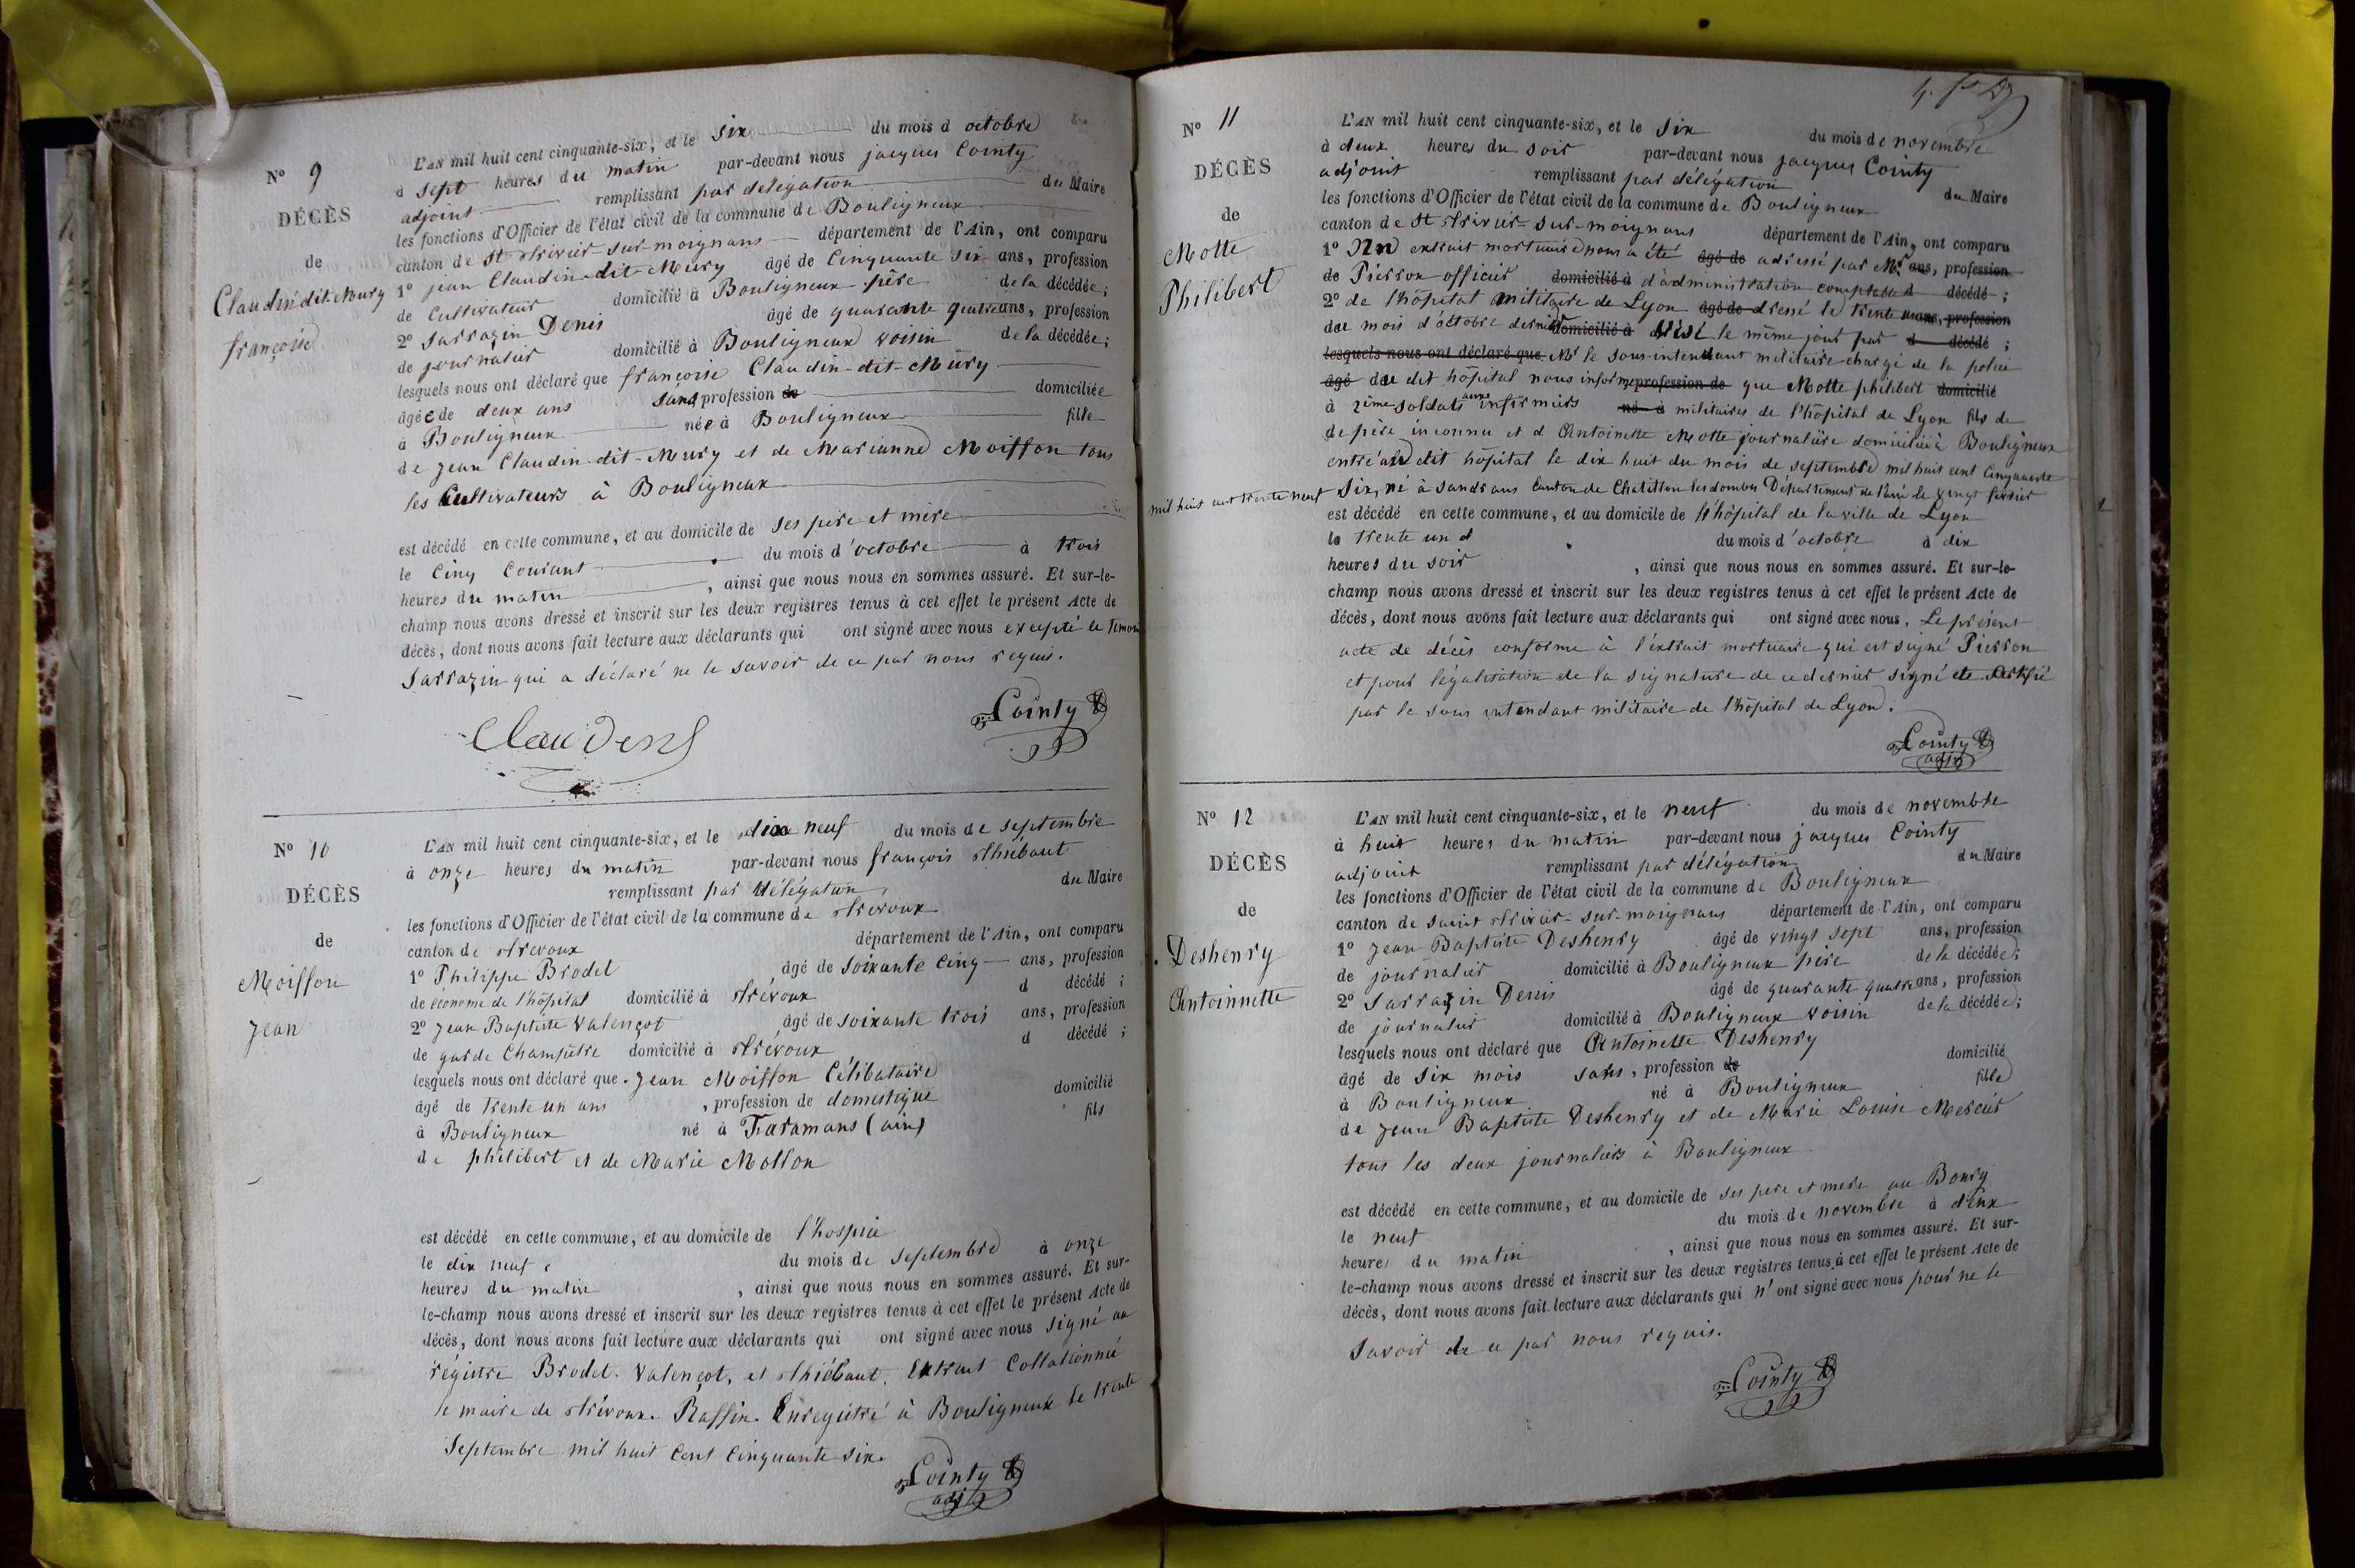 N° 9
DÉCÈS
de
Claudin dit Mury
françoise
L'AN mil huit cent cinquante-six, et le six du mois d octobre
à sept heures du matin par-devant nous jacques Cointy
adjoint remplissant par délégation du Maire
les fonctions d'Officier de l'état civil de la commune de Bouligneux
canton de St Trivier-sur-moignans département de l'Ain, ont comparu
1° jean Claudin-dit-Mury âgé de Cinquante six ans, profession
de Cultivateur domicilié à Bouligneux père de la décédée;
2° Sarrazin Denis âgé de quarante quatre ans, profession
de journalier domicilié à Bouligneux voisin de la décédée;
lesquels nous ont déclaré que françoise Claudin-dit-Mury
âgée de deux ans sans profession de domiciliée
à Bouligneux née à Bouligneux fille
de jean Claudin-dit-Mury et de Marianne Moisson tous
les Cultivateurs à Bouligneux
est décédé en cette commune, et au domicile de ses père et mère
le Cinq Courant du mois d'octobre à trois
heures du matin, ainsi que nous nous en sommes assuré. Et sur-le-
champ nous avons dressé et inscrit sur les deux registres tenus à cet effet le présent Acte de
décès, dont nous avons fait lecture aux déclarants qui ont signé avec nous excepté le temoin
Sarrazin qui a déclaré ne le savoir de ce par nous requis.
Cointy
Claudens
N° 10
DÉCÈS
de
Moisson
Jean
L'AN mil huit cent cinquante-six, et le dix neuf du mois de septembre
à onze heures du matin par-devant nous françois Thiébaut
remplissant par délégation, du Maire
les fonctions d'Officier de l'état civil de la commune de Trévoux
canton de Trévoux département de l'Ain, ont comparu
1° Philippe Brodet âgé de soixante Cinq ans, profession
de économe de l'hôpital domicilié à Trévoux d décédé;
2° Jean Baptiste Valençot âgé de soixante trois ans, profession
de garde Champêtre domicilié à Trévoux d décédé;
lesquels nous ont déclaré que Jean Moisson Célibataire
âgé de trente un ans, profession de domestique domicilié
à Bouligneux né à Faramans (ain) fils
de philibert et de Marie Mollon
est décédé en cette commune, et au domicile de l'hospice
le dix neuf du mois de septembre à onze
heures du matin, ainsi que nous nous en sommes assuré. Et sur-
le-champ nous avons dressé et inscrit sur les deux registres tenus à cet effet le présent Acte de
décès, dont nous avons fait lecture aux déclarants qui ont signé avec nous signé au
régistre Brodet. Valençot, et Thiébaut. Extrait Collationné
le maire de Trévoux. Raffin. Enregistré à Bouligneux le trente
Septembre mil huit Cent Cinquante six.
Cointy
adj
N° 11
DÉCÈS
de
Motte
Philibert
L'AN mil huit cent cinquante-six, et le six du mois de novembre
à deux heures du soir par-devant nous jacques Cointy
adjoint remplissant par délégation du Maire
les fonctions d'Officier de l'état civil de la commune de Bouligneux
canton de St Trivier-sur-moignans département de l'Ain, ont comparu
1° Un extrait mortuaire nous a été âgé de adressé par Mr ans, profession
de Pierron officier domicilié à d'administration comptable d décédé;
2° de l'hôpital militaire de Lyon âgé de dressé le trente un ans, profession
du mois d'octobre dernier domicilié à visé le même jour par d décédé;
lesquels nous ont déclaré que Mr le sous-intendant militaire chargé de la police
âgé du dit hôpital nous informe profession de que Motte philibert domicilié
à 2ème soldats aux infirmiers né à militaires de l'hôpital de Lyon fils de
de père inconnu et d Antoinette Motte journalière domiciliée à Bouligneux
entré au dit hôpital le dix huit du mois de septembre mil huit cent Cinquante
six, né à sandrans Canton de Chatillon les dombes Département de l'ain le vingt février
mil huit cent trente neuf
est décédé en cette commune, et au domicile de l'hôpital de la ville de Lyon
le trente un d du mois d'octobre à dix
heures du soir, ainsi que nous nous en sommes assuré. Et sur-le-
champ nous avons dressé et inscrit sur les deux registres tenus à cet effet le présent Acte de
décès, dont nous avons fait lecture aux déclarants qui ont signé avec nous. Le présent
acte de décès conforme à l'extrait mortuaire qui est signé Pierron
et pour légalisation de la signature de ce dernier signé et certifié
par le sous intendant militaire de l'hôpital de Lyon.
Cointy
adj
N° 12
DÉCÈS
de
Deshenry
Antoinnette
L'AN mil huit cent cinquante-six, et le neuf du mois de novembre
à huit heures du matin par-devant nous jacques Cointy
adjoint remplissant par délégation du Maire
les fonctions d'Officier de l'état civil de la commune de Bouligneux
canton de saint Trivier-sur-moignans département de l'Ain, ont comparu
1° Jean Baptiste Deshenry âgé de vingt sept ans, profession
de journalier domicilié à Bouligneux père de la décédée;
2° Sarrazin Denis âgé de quarante quatre ans, profession
de journalier domicilié à Bouligneux voisin de la décédée;
lesquels nous ont déclaré que Antoinette Deshenry
âgé de six mois sans, profession de domicilié
à Bouligneux né à Bouligneux fille
de Jean Baptiste Deshenry et de Marie Louise Mercier
tous les deux journaliers à Bouligneux
est décédé en cette commune, et au domicile de ses père et mère au Bourg
le neuf du mois de novembre à deux
heures du matin, ainsi que nous nous en sommes assuré. Et sur-
le-champ nous avons dressé et inscrit sur les deux registres tenus à cet effet le présent Acte de
décès, dont nous avons fait lecture aux déclarants qui n'ont signé avec nous pour ne le
savoir de ce par nous requis.
Cointy